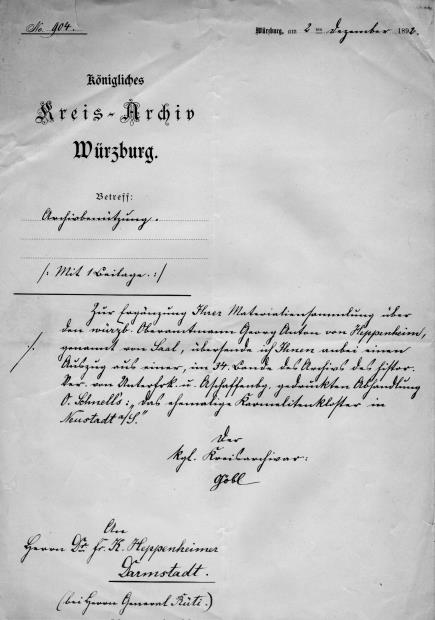 No. 904.
Würzburg, am 2ten Dezember 1892.
Königliches
Kreis-Archiv
Würzburg.
Betreff:
Archivbenützung.
/: Mit 1 Beilage. :/
Zur Ergänzung Ihrer Materialiensammlung über
den würzb. Oberamtmann Georg Anton von Heppenheim,
genannt von Saal, übersende ich Ihnen anbei einen
/. Auszug aus einer, im 34. Bande des Archivs des histor.
Ver. von Unterfrk. u. Aschaffenbg. gedruckten Abhandlung
O. Schnell's: „das ehemalige Karmelitenkloster in
Neustadt a/S."
Der
kgl. Kreisarchivar:
Göbl
An
Herrn Dr. Fr. K. Heppenheimer
Darmstadt.
(bei Herrn General Küti.)